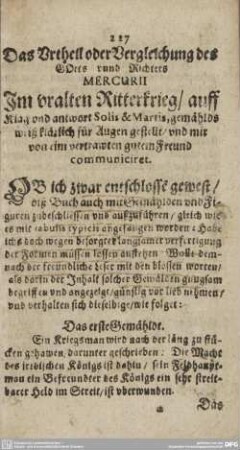 217
Das Vrtheil oder Vergleichung des
Gotts vnnd Richters
MERCURII
Im vralten Ritterkrieg / auff
Klag vnd antwort Solis & Martis, gemählds
weiß klärlich für Augen gestellt / vnd mir
von eim vertrawten guten Freund
communiciret.
OB ich zwar entschlosse gewest /
diß Buch auch mit Gemählden vnd Fi-
guren zubeschliessen vnd außzuführen / gleich wie
es mit tabulis typicis angefangen worden : Habe
ichs doch wegen besorgter langsamer verfertigung
der Formen müssen lassen anstehen. Wolle dem-
nach der freundliche Leser mit den blossen worten /
als darin der Inhalt solcher Gemälden gnugsam
begriffen vnd angezeigt / günstig vor lieb nehmen /
vnd verhalten sich dieselbige / wie folget :
Das erste Gemählde.
Ein Kriegsman wird nach der läng zu stü-
cken gehawen, darunter geschrieben : Die Macht
des irrdischen Königs ist dahin / sein Feldhaupt-
man ein Befreundter des Königs ein sehr streit-
barer Held im Streit / ist vberwunden.
Das